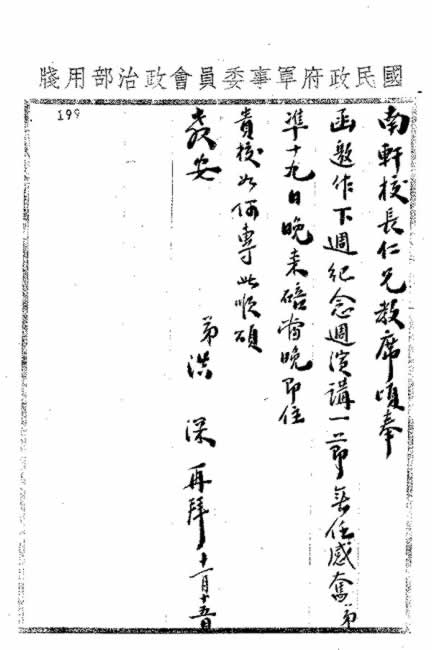 國民政府軍事委員會政治部用牋
199
南軒校長仁兄教席頃奉
函邀作下週紀念週演講一節無任感奮弟
準十九日晚來碚當晚即住
貴校如何專此順頌
教安
弟洪深再拜十一月十五日